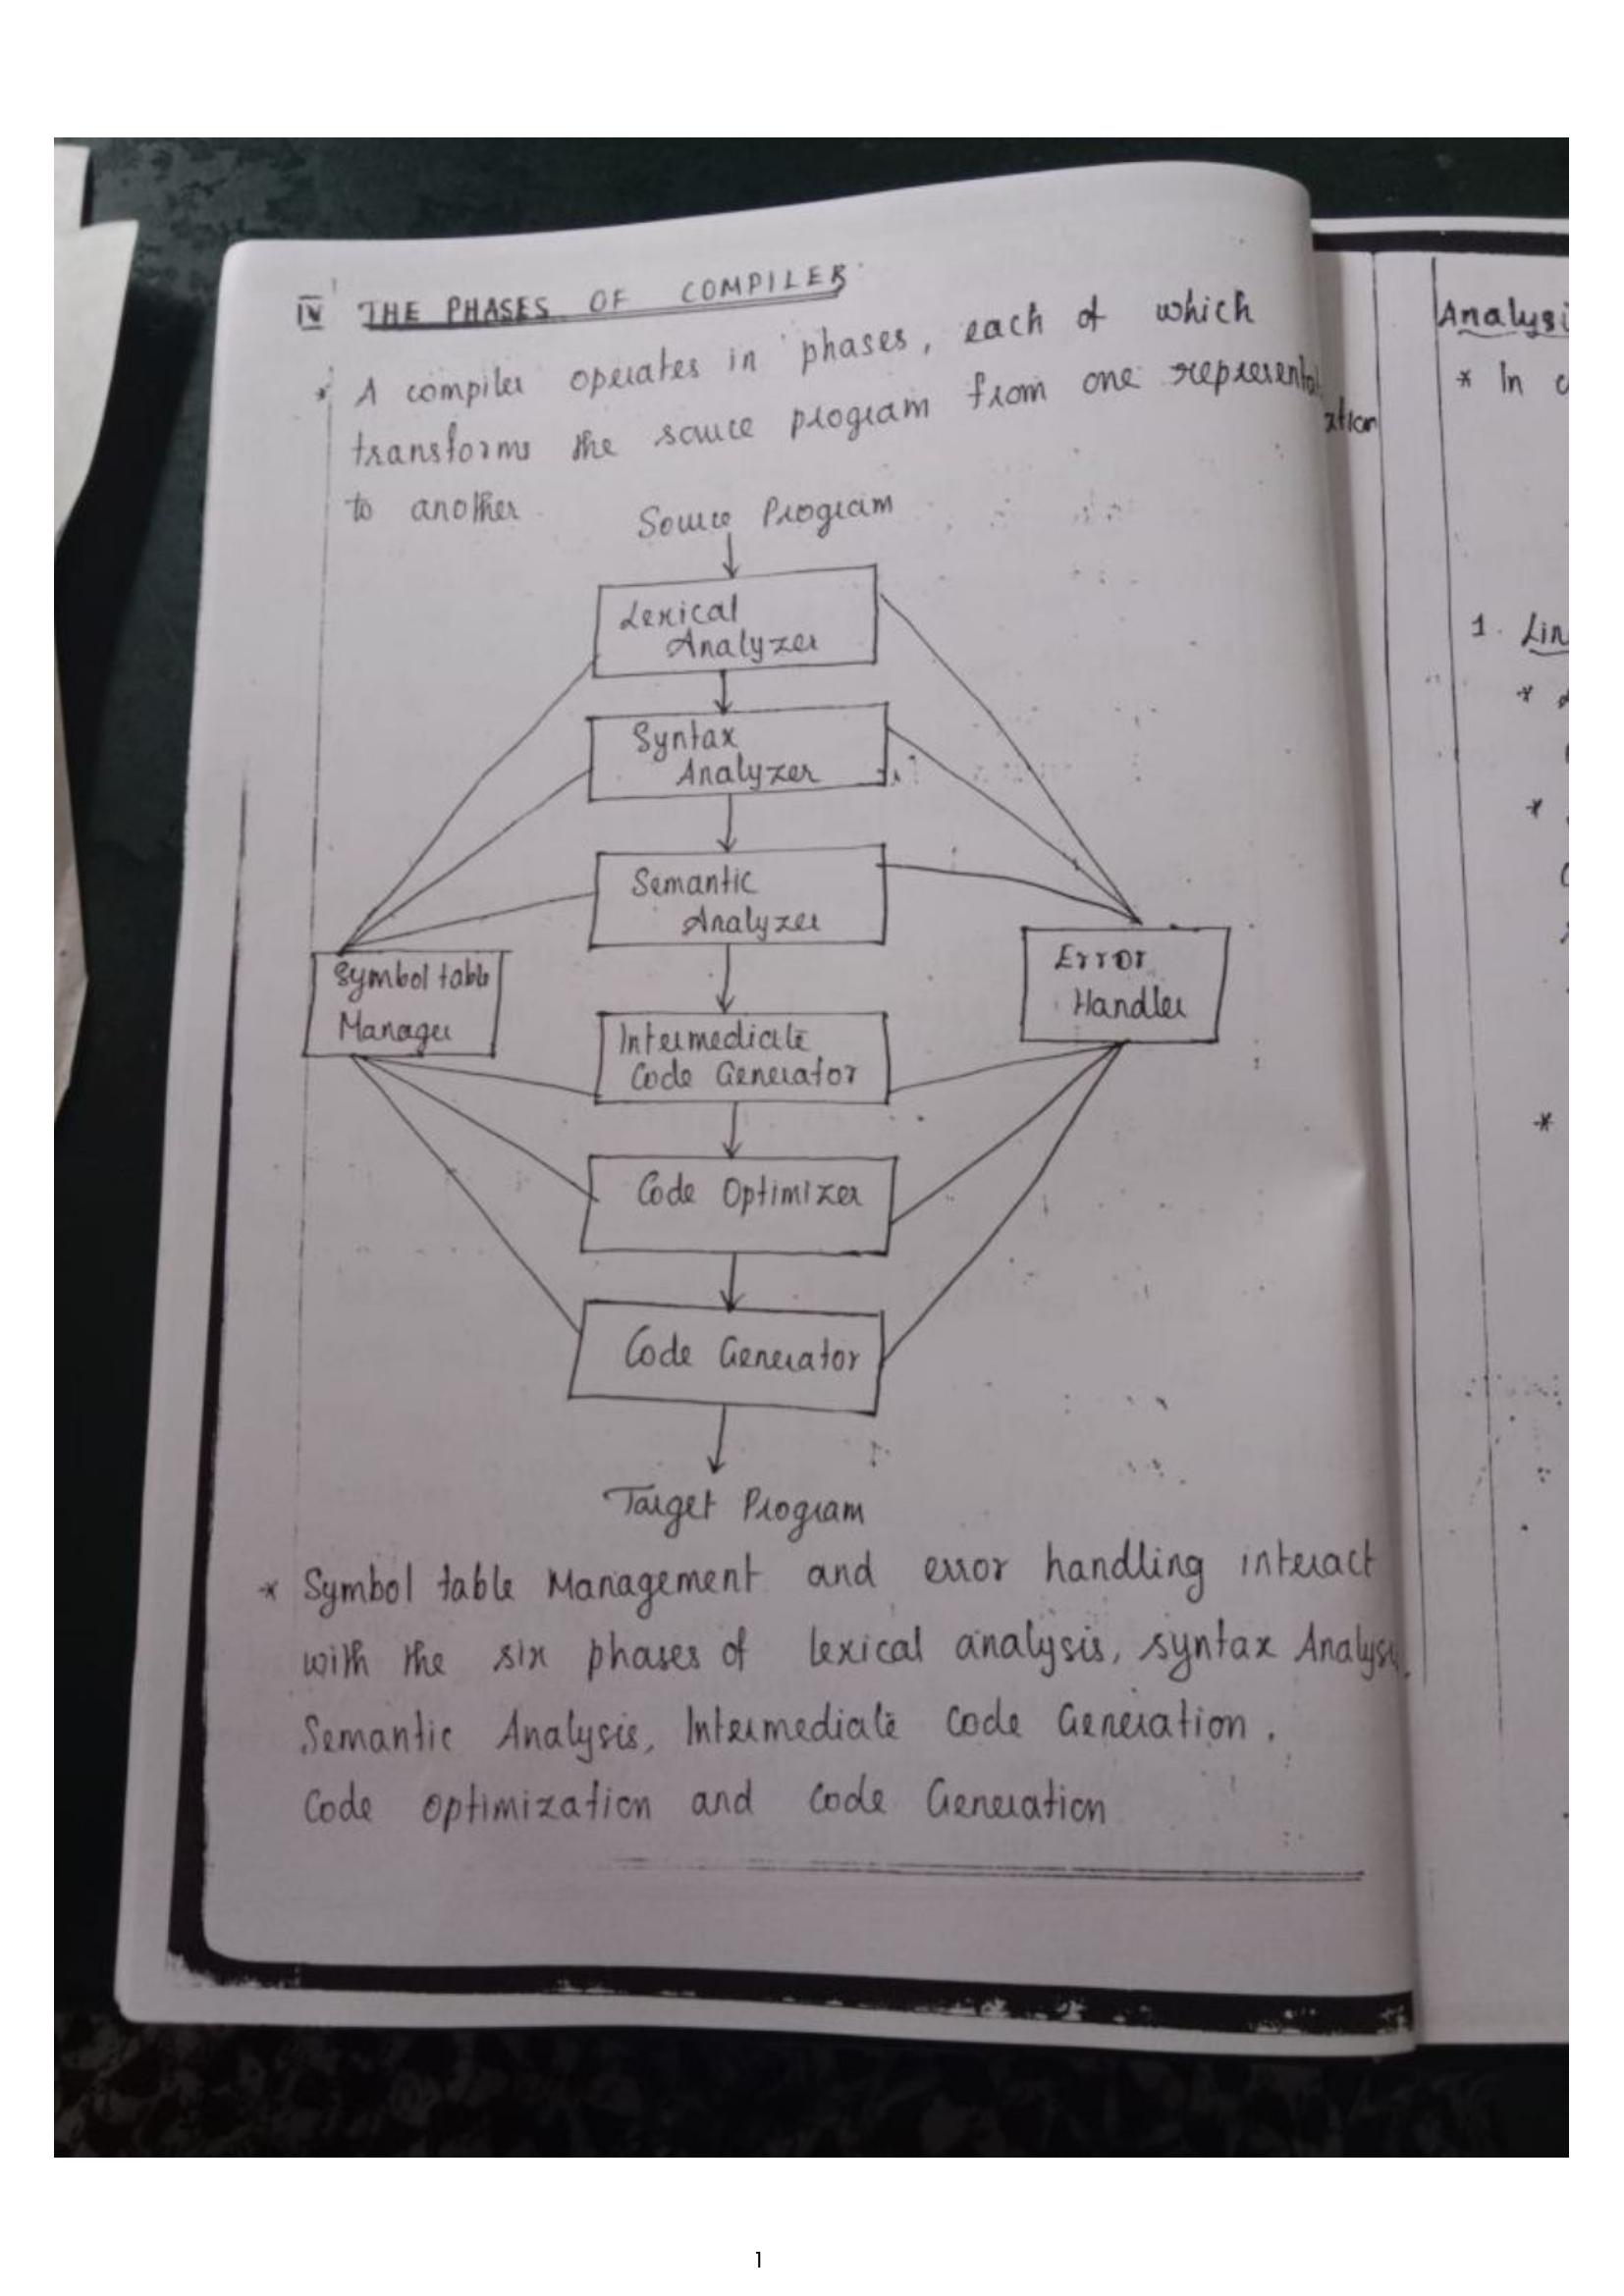 IV THE PHASES OF COMPILER
* A compiler operates in phases, each of which
transforms the source program from one representation
to another.
Source Program
Lexical
Analyzer
Syntax
Analyzer
Semantic
Analyzer
Symbol table
Manager
Error
Handler
Intermediate
Code Generator
Code Optimizer
Code Generator
Target Program
* Symbol table Management and error handling interact
with the six phases of lexical analysis, syntax Analysis,
Semantic Analysis, Intermediate Code Generation.
Code optimization and Code Generation
Analysi
* In c
1. Lin
1